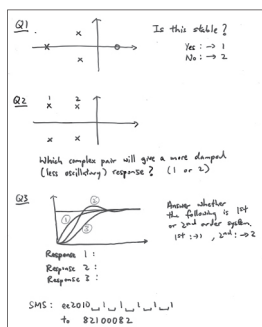 Q1
Is this stable?
Yes: → 1
No: → 2
Q2
1 2
Which complex pair will give a more damped
(less oscillatory) response? (1 or 2)
Q3
① ② ③
Answer whether
the following is 1st
or 2nd order system
1st :→1, 2nd :→2
Response 1 :
Response 2 :
Response 3 :
SMS: ee2010
to 82100082